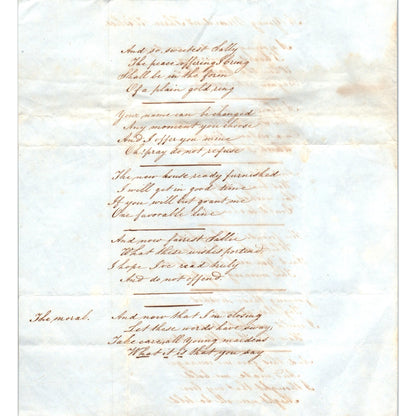 And so, sweetest Sally
The peace offering I bring
Shall be in the form
Of a plain gold ring
Your name can be changed
Any moment you choose
And I offer you mine
Oh! pray do not refuse
The new house ready furnished
I will get in good time
If you will but grant me
One favorable line
And now fairest Sallie
What these wishes portend,
I hope I've read truly
And do not offend.
The moral. And now that I'm closing
Let these words have sway,
Take care, all young maidens
What it is that you say